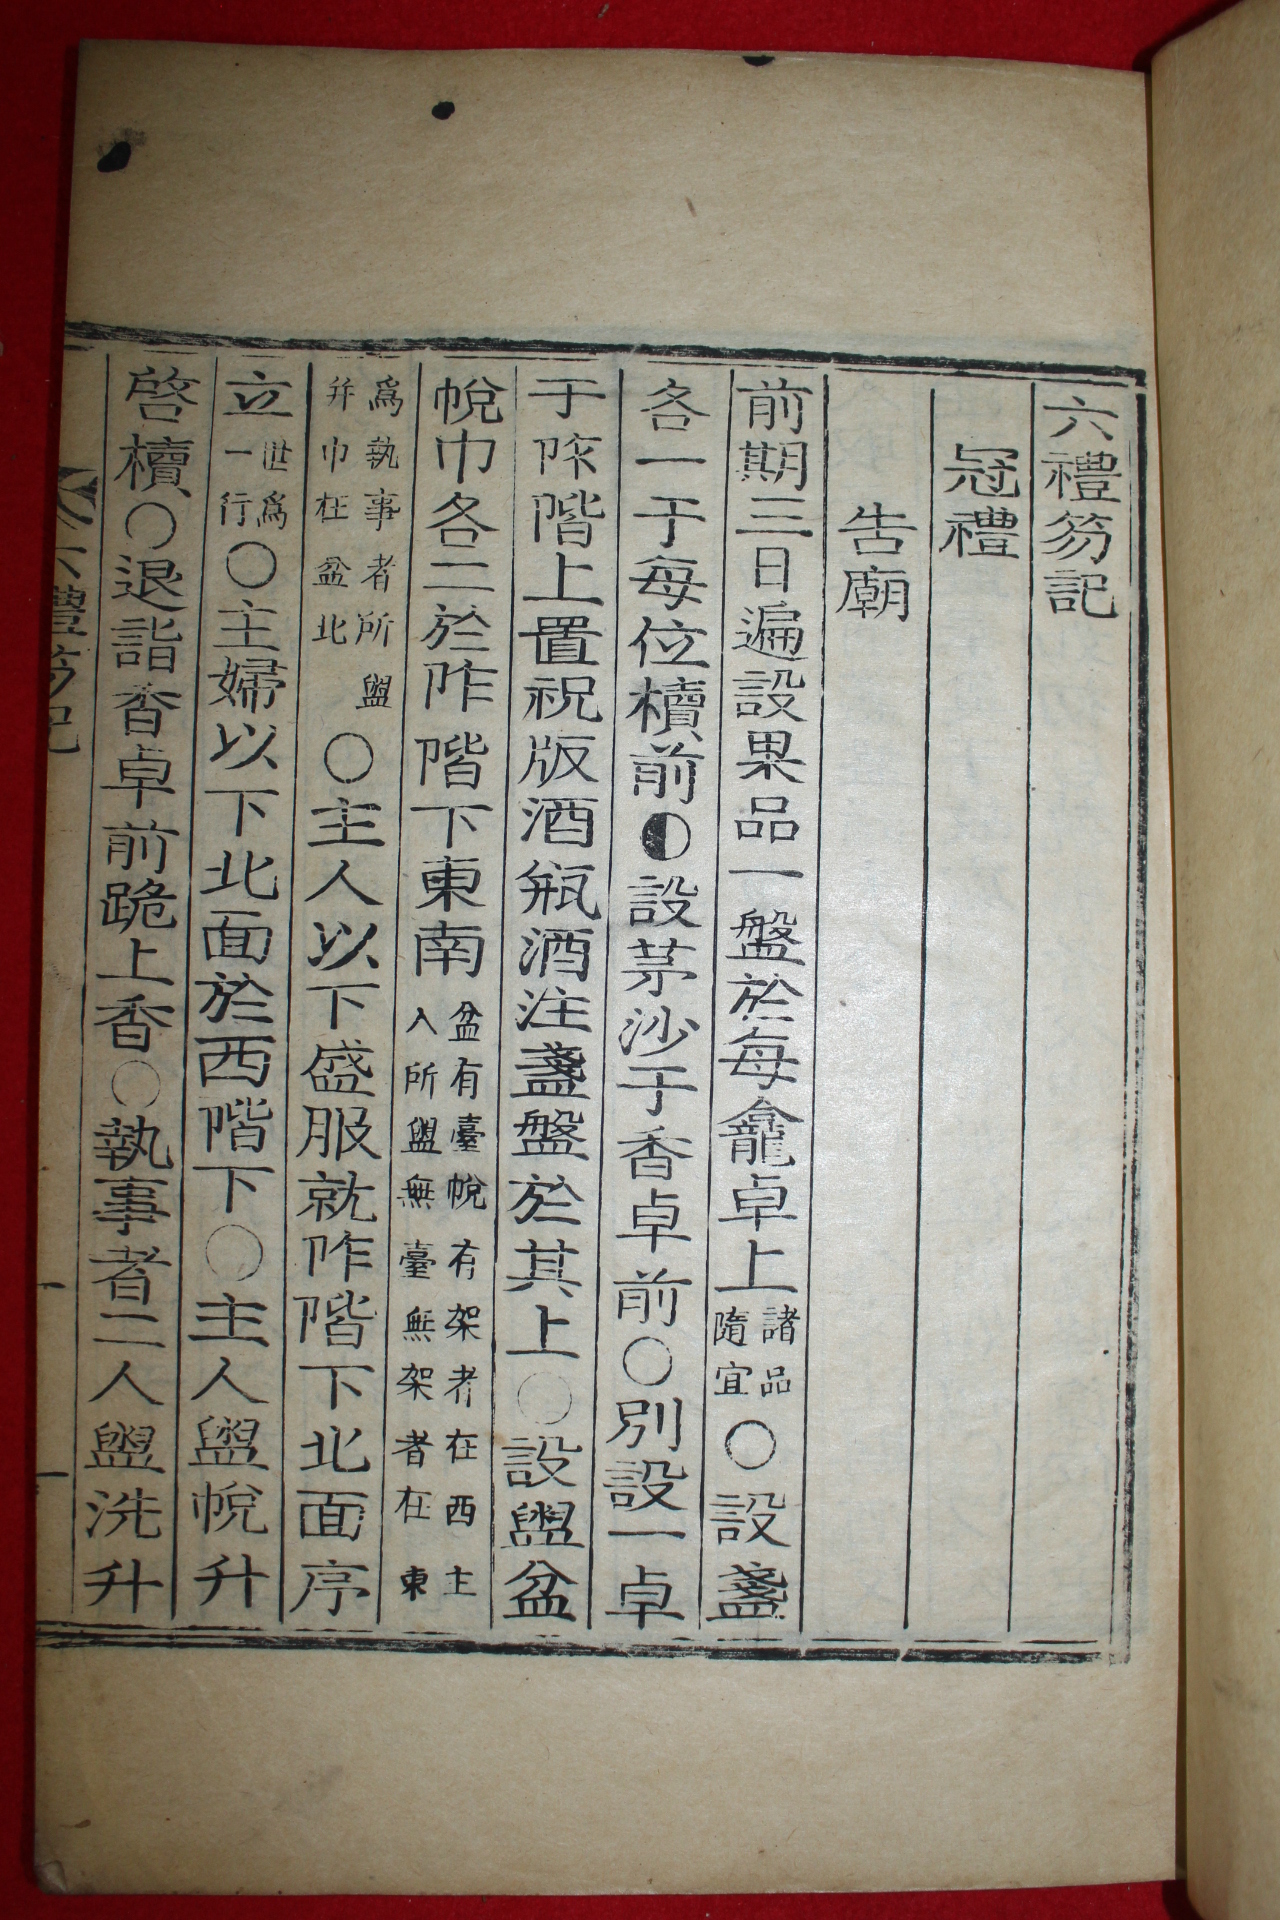 六禮笏記
冠禮
告廟
前期三日遍設果品一盤於每龕卓上諸品隨宜○設盞
各一于每位櫝前◐設茅沙于香卓前○別設一卓
于阼階上置祝版酒瓶酒注盞盤於其上○設盥盆
帨巾各二於阼階下東南盆有臺帨有架者在西主人所盥無臺無架者在東
爲執事者所盥并巾在盆北○主人以下盛服就阼階下北面序
立世爲一行○主婦以下北面於西階下○主人盥帨升
啓櫝○退詣香卓前跪上香○執事者二人盥洗升
六禮笏記
一